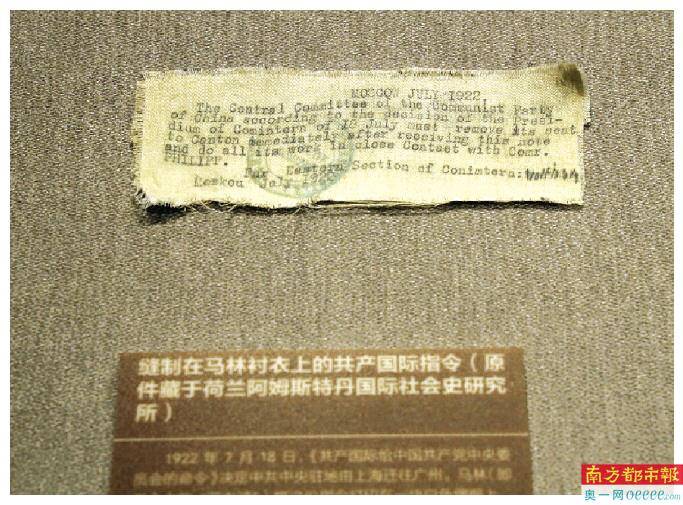 MOSCOW JULY 1922
The Central Committee of the Communist Party
of China according to the decision of the Presi-
dium of Comintern of 18 July must remove its seat
to Canton immediately after receiving this note
and do all its work in close Contact with Comr.
PHILIPP.
Far Eastern Section of Comintern:
Moskou July 1922
缝制在马林衬衣上的共产国际指令（原
件藏于荷兰阿姆斯特丹国际社会史研究
所）
1922 年 7 月 18 日，《共产国际给中国共产党中央委
南方都市報
奥一网oeeee.com